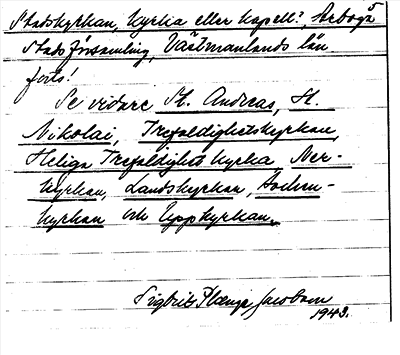 5
Stadskyrkan, kyrka eller kapell?, Arboga
Stadsförsamling, Västmanlands län
forts!
Se vidare St. Andreas, St.
Nikolai, Trefaldighetskyrkan,
Heliga Trefaldighets kyrka Ner-
kyrkan, Landskyrkan, Socken-
kyrkan och Uppkyrkan.
Sigbrit Plænge Jacobson
1943.